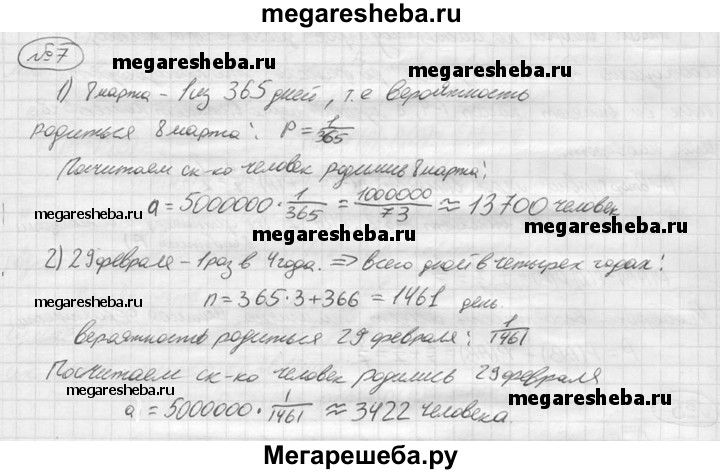 megaresheba.ru
№7
megaresheba.ru megaresheba.ru
1) 8 марта - 1 из 365 дней, т.е вероятность
родиться 8 марта: P = 1/365
Посчитаем ск-ко человек родились 8 марта:
a = 5000000 · 1/365 = 1000000/73 ≈ 13700 человек
megaresheba.ru megaresheba.ru
2) 29 февраля - 1 раз в 4 года. ⇒ всего дней в четырех годах:
n = 365·3+366 = 1461 день.
megaresheba.ru megaresheba.ru
вероятность родиться 29 февраля: 1/1461
Посчитаем ск-ко человек родились 29 февраля
megaresheba.ru megaresheba.ru
a = 5000000 · 1/1461 ≈ 3422 человека.
Мегарешеба.ру